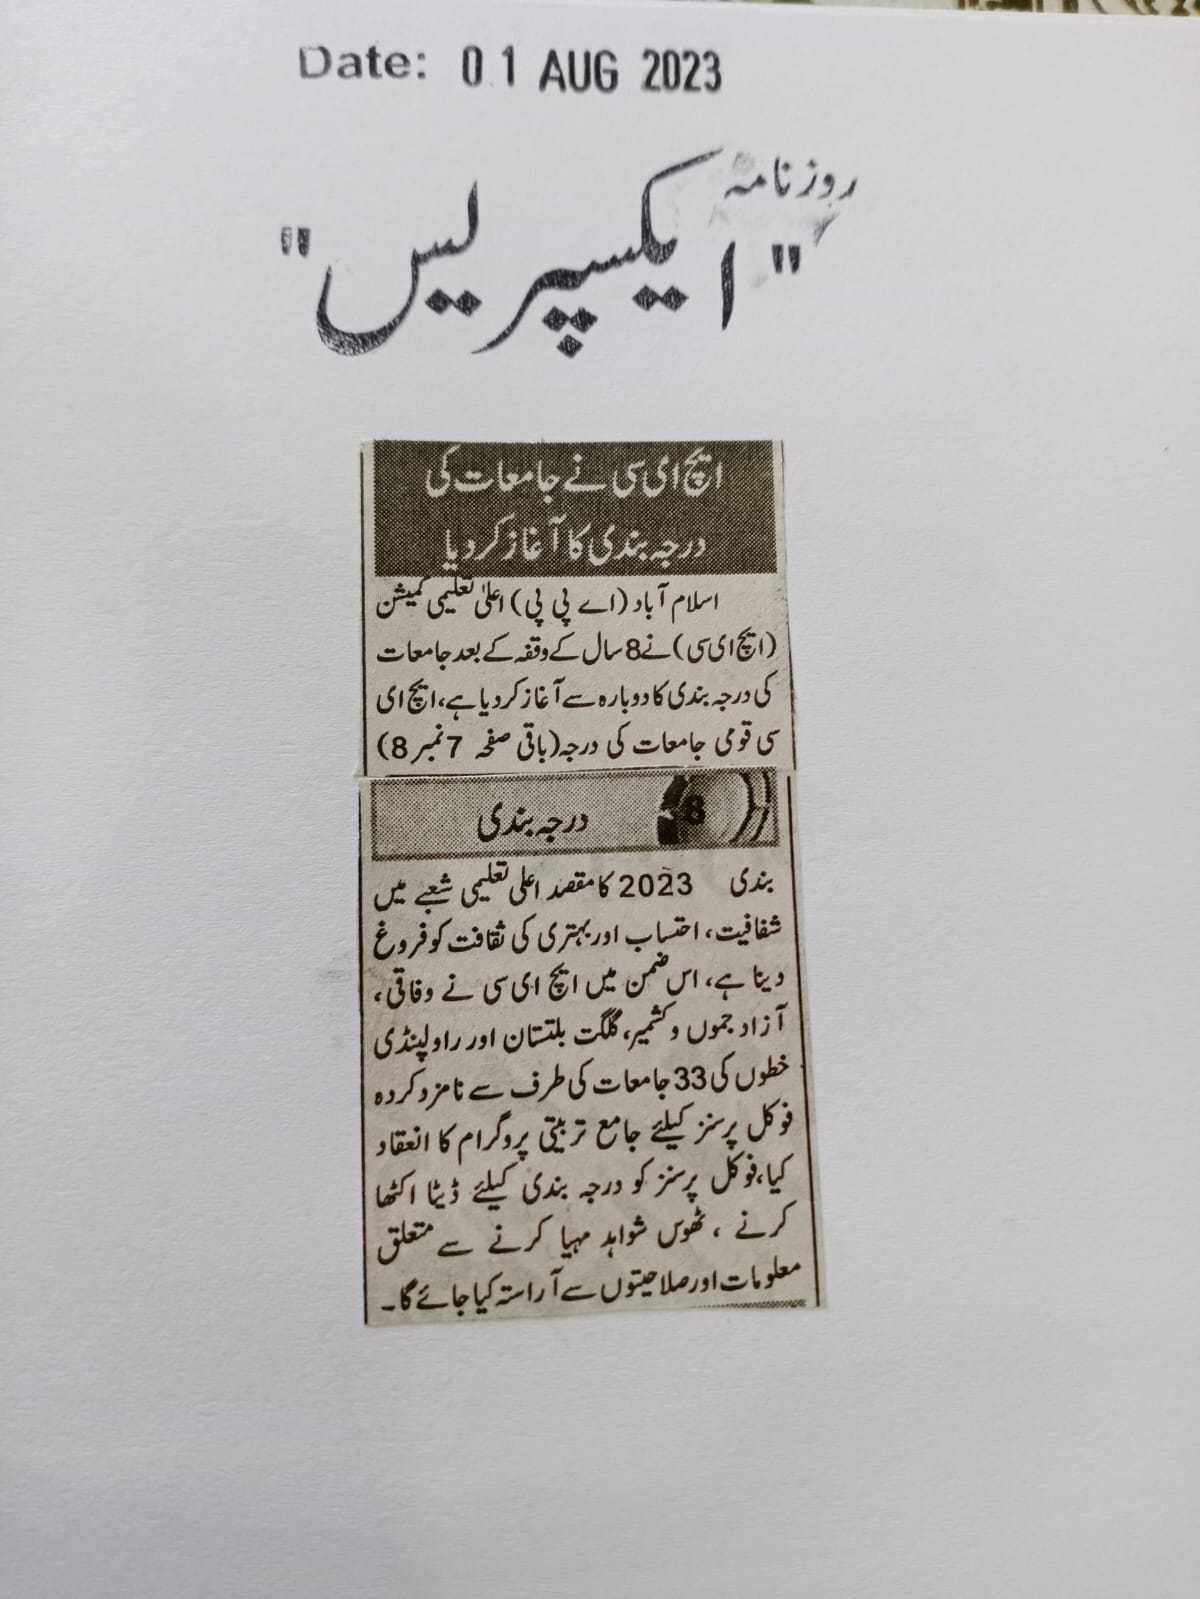 Date: 01 AUG 2023
روزنامہ
"ایکسپریس"
ایچ ای سی نے جامعات کی
درجہ بندی کا آغاز کردیا
اسلام آباد (اے پی پی) اعلیٰ تعلیمی کمیشن
(ایچ ای سی) نے 8 سال کے وقفہ کے بعد جامعات
کی درجہ بندی کا دوبارہ سے آغاز کردیا ہے، ایچ ای
سی قومی جامعات کی درجہ (باقی صفحہ 7 نمبر 8)
8 درجہ بندی
بندی 2023 کا مقصد اعلی تعلیمی شعبے میں
شفافیت، احتساب اور بہتری کی ثقافت کو فروغ
دینا ہے، اس ضمن میں ایچ ای سی نے وفاقی،
آزاد جموں و کشمیر، گلگت بلتستان اور راولپنڈی
خطوں کی 33 جامعات کی طرف سے نامزد کردہ
فوکل پرسنز کیلئے جامع تربیتی پروگرام کا انعقاد
کیا، فوکل پرسنز کو درجہ بندی کیلئے ڈیٹا اکٹھا
کرنے ، ٹھوس شواہد مہیا کرنے سے متعلق
معلومات اور صلاحیتوں سے آراستہ کیا جائے گا۔